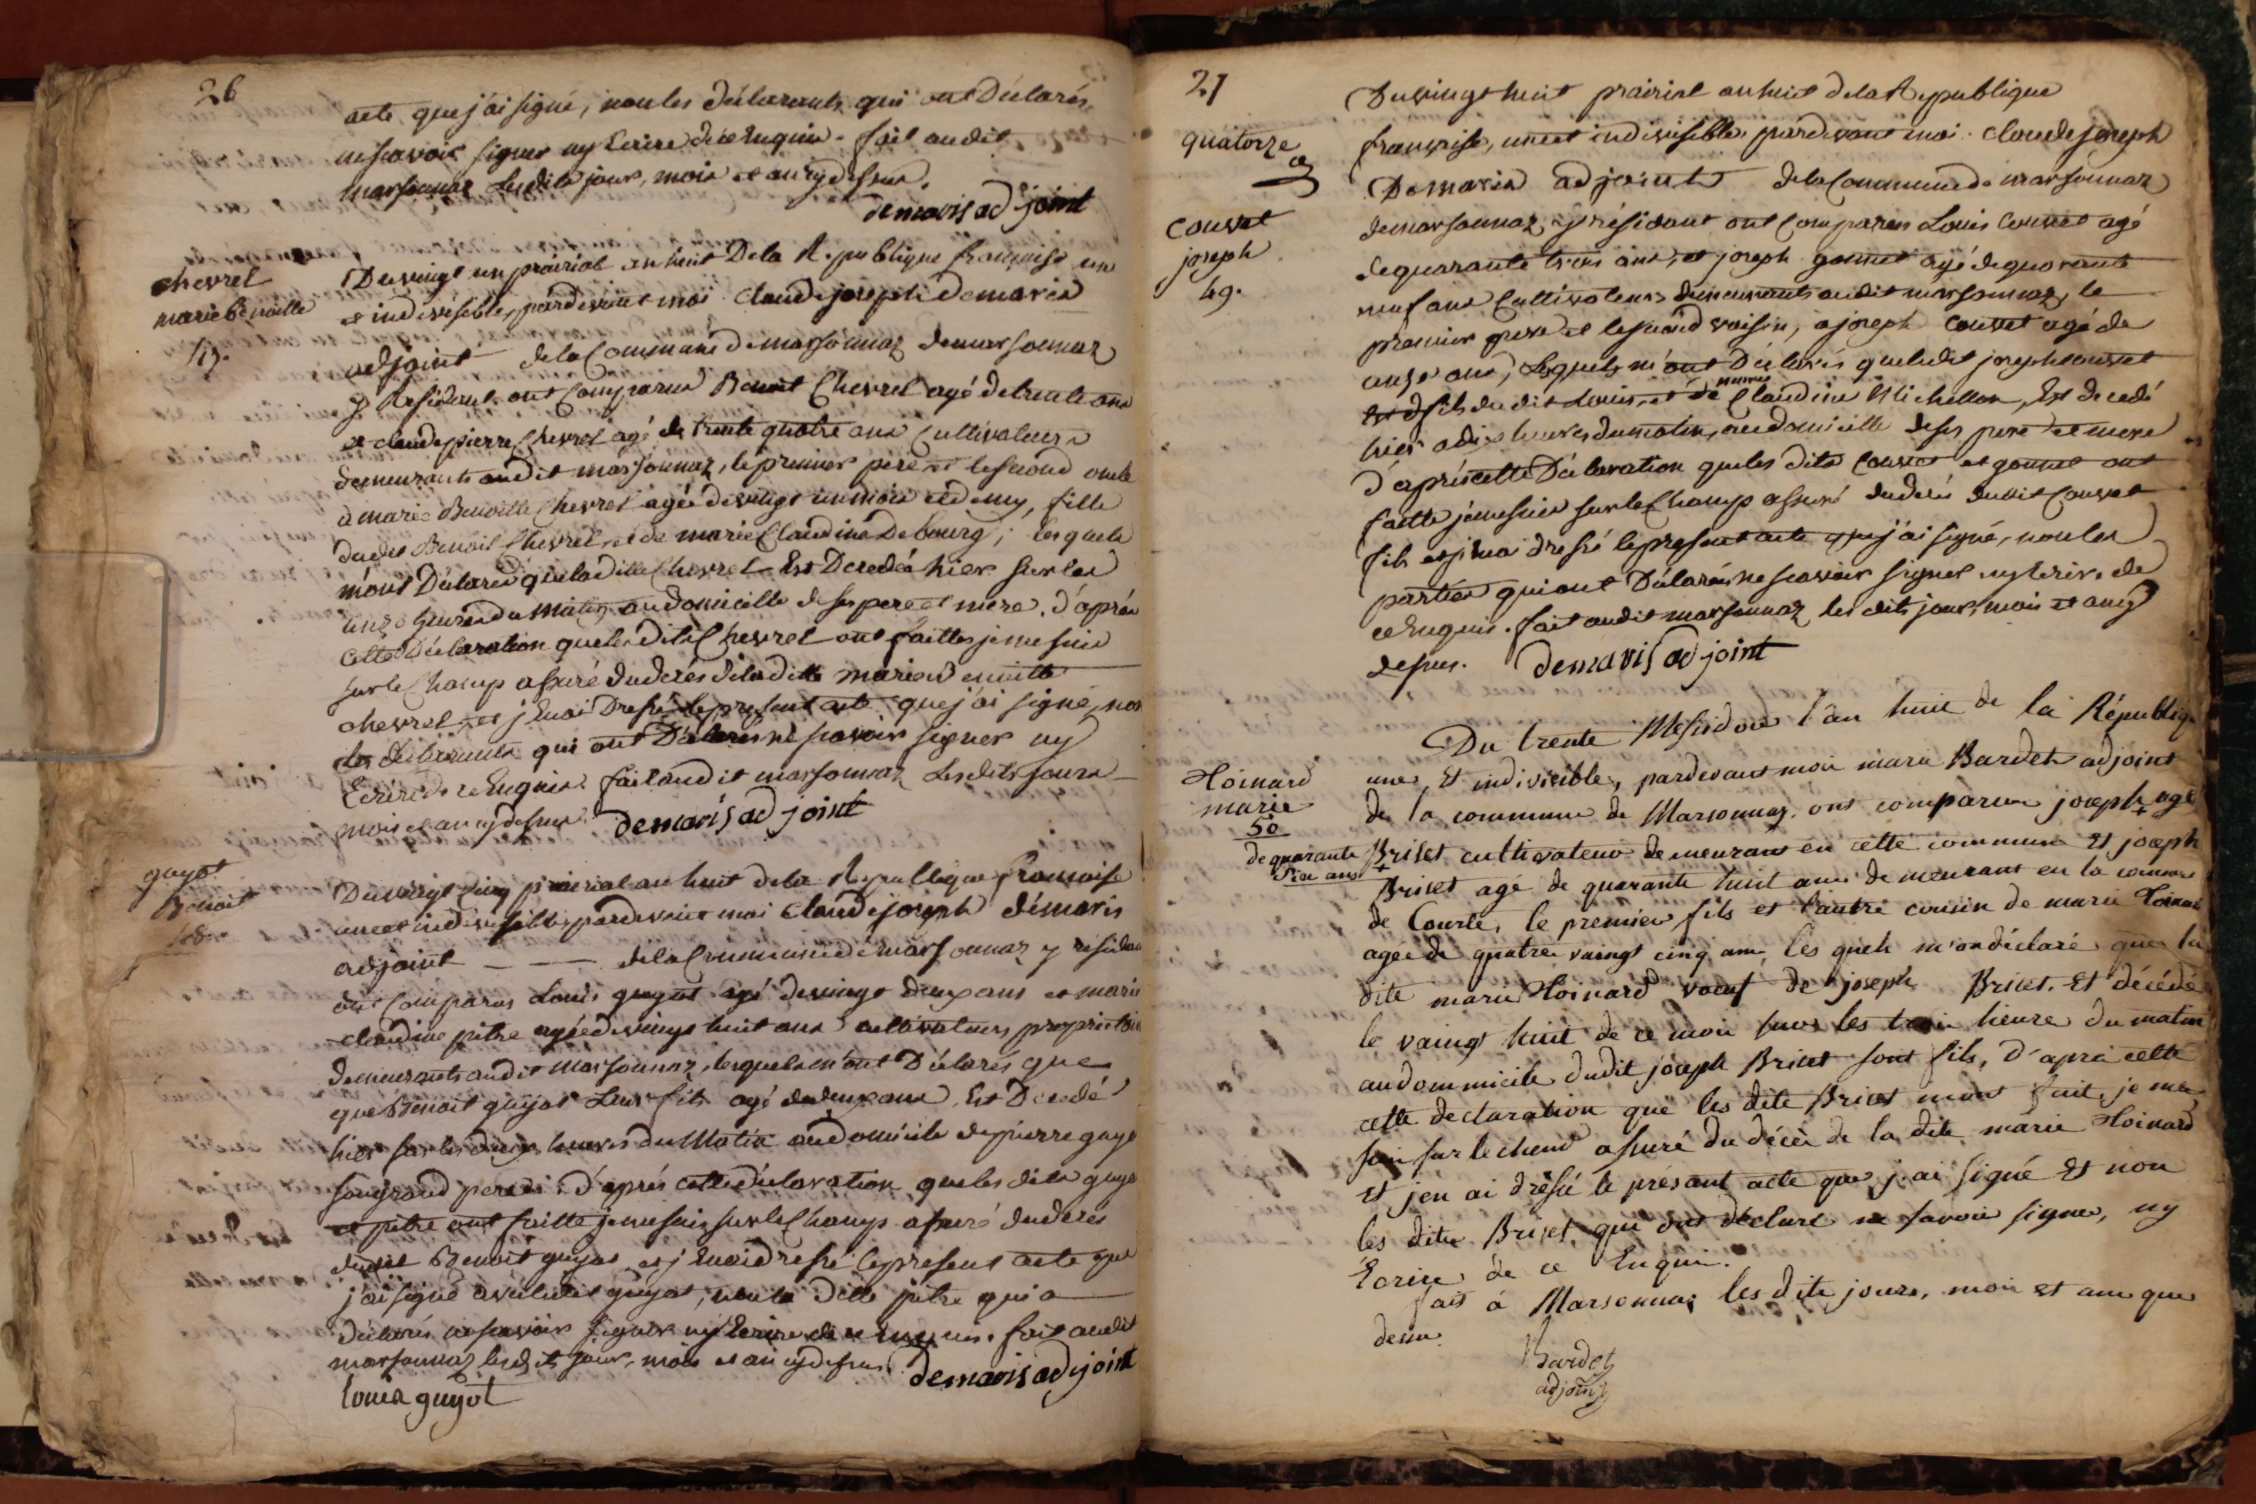 26
acte que j'ai signé, non les déclarants qui ont Déclarés
ne scavoir signer ny Ecrire de ce Enquis. fait audit
marsonnaz lesdits jour, mois et an cy dessus.
demaris adjoint
chevrel
marie benoitte
47.
Du vingt un prairial an huit De la République francaise une
et indivisible, pardevant moi Claude joseph Demaris
adjoint de la Commune de marsonnaz demarsonnaz
y Résidant ont Comparus Benoit Chevrel agé de trente ans
et claude pierre Chevrel agé de trente quatre ans Cultivateurs
demeurants audit marsonnaz, le premier pere et le second oncle
a marie Benoitte Chevrel agée de vingt un mois et demy, fille
dudit Benoit Chevrel et de marie Claudine Debourg; lesquels
m'ont Déclarés que laditte Chevrel Est Decedéé hier sur les
onze heures du matin au domicille de ses pere et mere. d'aprés
cette Déclaration que les dits Chevrel ont faittes je me suis
sur le Champ assuré du decés de laditte marie benoitte
chevrel et j'Enai Dressé le present acte que j'ai signé, non
les déclarants qui ont Déclarés ne scavoir signer ny
Ecrire de ce Enquis. fait audit marsonnaz lesdits jours
mois et an cy dessus. demaris adjoint
guyot
Benoit
48.
Du vingt cinq prairial an huit de la République francaise
une et indivisible, pardevant moi Claude joseph démaris
adjoint — — de la Commune de marsonnaz y résidant
ont Comparus Louis guyot agé de vingt deux ans et marie
claudine pitre agée de vingt huit ans cultivateurs proprietaires
demeurants audit marsonnaz, lesquels m'ont Déclarés que
que Benoit guyot Leur fils agé de deux ans Est Decedé
hier sur les heures du Matin au domicile de pierre guyot
son grand pere. d'aprés cette déclaration que les dits guyot
et pitre ont faitte je me suis sur le Champ assuré du deces
dudit Benoit guyot et j'Enai dressé le present acte que
j'ai signé avec ledit guyot, non la ditte pitre qui a
déclarés ne scavoir signer ny Ecrire de ce enquis. fait audit
marsonnaz lesdits jour, mois et an cy dessus.
demaris adjoint
louis guyot
27
quatorze
couvet
joseph
49.
Du vingt huit prairial an huit de la République
francaise, une et indivisible. pardevant moi Claude joseph
Demaris adjoint de la Commune de marsonnaz
demarsonnaz y résidant ont Comparus Louis Couvet agé
de quarante trois ans, et joseph gonnet agé de quarante
neuf ans Cultivateurs demeurants audit marsonnaz, le
premier pere et le second voisin, a joseph Couvet agé de
onze ans, lesquels m'ont Déclarés que ledit joseph couvet
est fils dudit Louis, et de Claudine Michellon, Est decedé
hier a dix heures du matin, au domicille de ses pere et mere
d'aprés cette Déclaration que les dits Couvet et gonnet ont
faitte je me suis sur le Champ assuré du decés dudit Couvet
fils et j'Enai dressé le present acte que j'ai signé, non les
parties qui ont Déclarés ne scavoir signer ny Ecrire de
ce Enquis. fait audit marsonnaz les dits jour, mois et an cy
dessus. demaris adjoint
Hoinard
marie
50
Du trente Messidor l'an huit de la République
une, Et indivisible, pardevant moi marie Bardet adjoint
de la commune de Marsonnaz. ont comparus joseph + agé
de quarante
six ans +
Briset cultivateur demeurant en cette commune Et joseph
Briset agé de quarante huit ans demeurant en la commune
de Courtes, le premier fils et l'autre cousin de marie Hoinard
agée de quatre vaingt cinq ans, les quels m'on déclaré que la
dite marie Hoinard voeuf de joseph Briset. Et décédé
le vaingt huit de ce mois sur les trois heure du matin
audommicile dudit joseph Briset sont fils, D'après cette
cette declaration que les dits Briset mont fait, je me
suis sur le champ assuré du décès de la dite marie Hoinard
Et jen ai dréssé le présant acte que j'ai signé Et non
les dits Briset. qui ont déclaré ne savoir signer, ny
Ecrire de ce Enquis.
fait à Marsonnaz les dits jours, mois et an que
dessu.
Bardet
adjoint